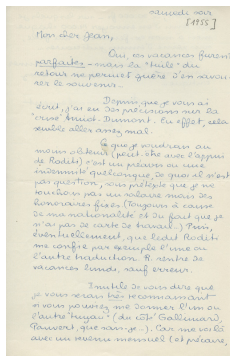 samedi soir
[1955]
Mon cher Jean,
Oui, os vacances furent
parfaites - mais la "tuile" du
retour ne permet guère d'en savou-
rer le souvenir.
Depuis que je vous ai
écrit, j'ai eu des précisions sur la
"crise" Amiot-Dumont. En effet, cela
semble aller assez mal.
Ce que je voudrais au
moins obtenir (peut être avec l'appui
de Roditi) c'est un préavis ou une
indemnité quelconque, de quoi il n'est
pas question, sous prétexte que je ne
touchais pas un salaire mais des
honoraires fixes (Toujours à cause
de ma nationalité et du fait que je
n'ai pas de carte de travail.) Puis,
éventuellement, que ledit Roditi
me confie par exemple l'une ou
l'autre traduction. R. rentre de
vacances lundi, sauf erreur.
Inutile de vous dire que
je vous serais très reconnaissant
si vous pouviez me donner l'un ou
l'autre "tuyau" (du côté Gallimard,
Pauvert, que sais-je...). Car me voilà
avec un revenu mensuel (et précaire,